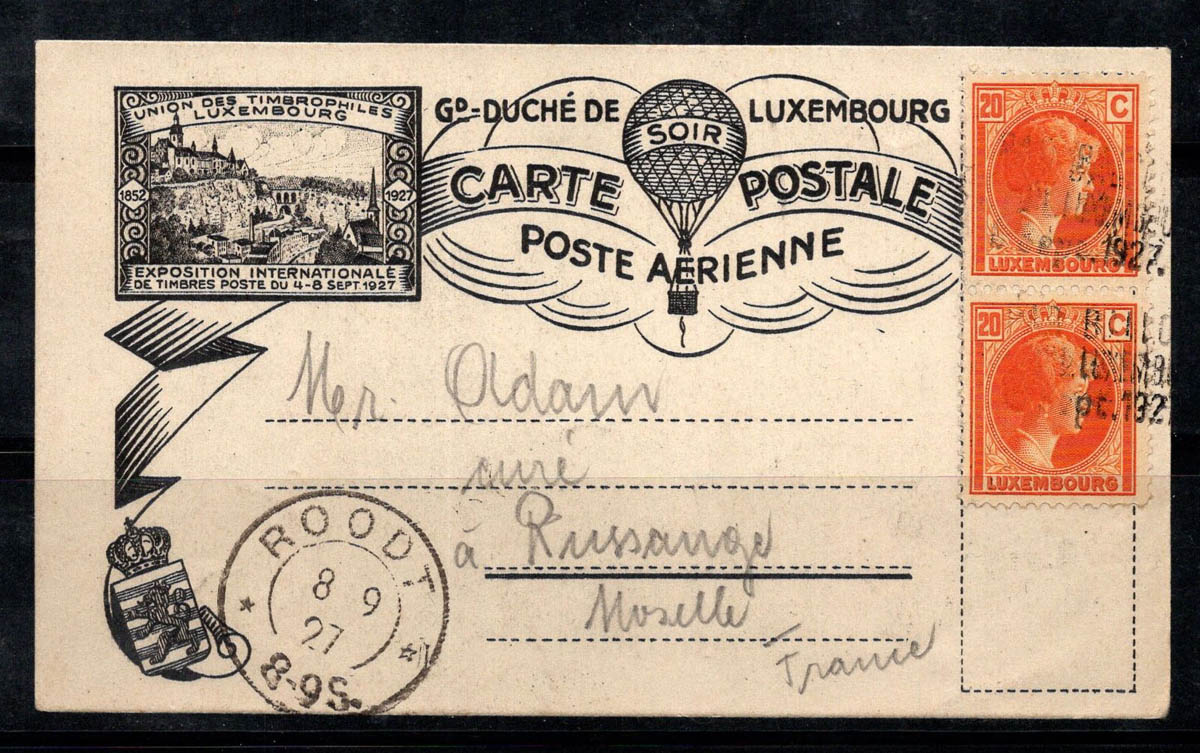 UNION DES TIMBROPHILES
LUXEMBOURG
1852
1927
EXPOSITION INTERNATIONALE
DE TIMBRES POSTE DU 4-8 SEPT. 1927
GD-DUCHÉ DE LUXEMBOURG
SOIR
CARTE POSTALE
POSTE AERIENNE
20 C
1927.
LUXEMBOURG
20 C
LUXEMBOURG
Mr. Adam
curé
à Russange
Moselle
France
ROODT
8 9
27
8-9S.